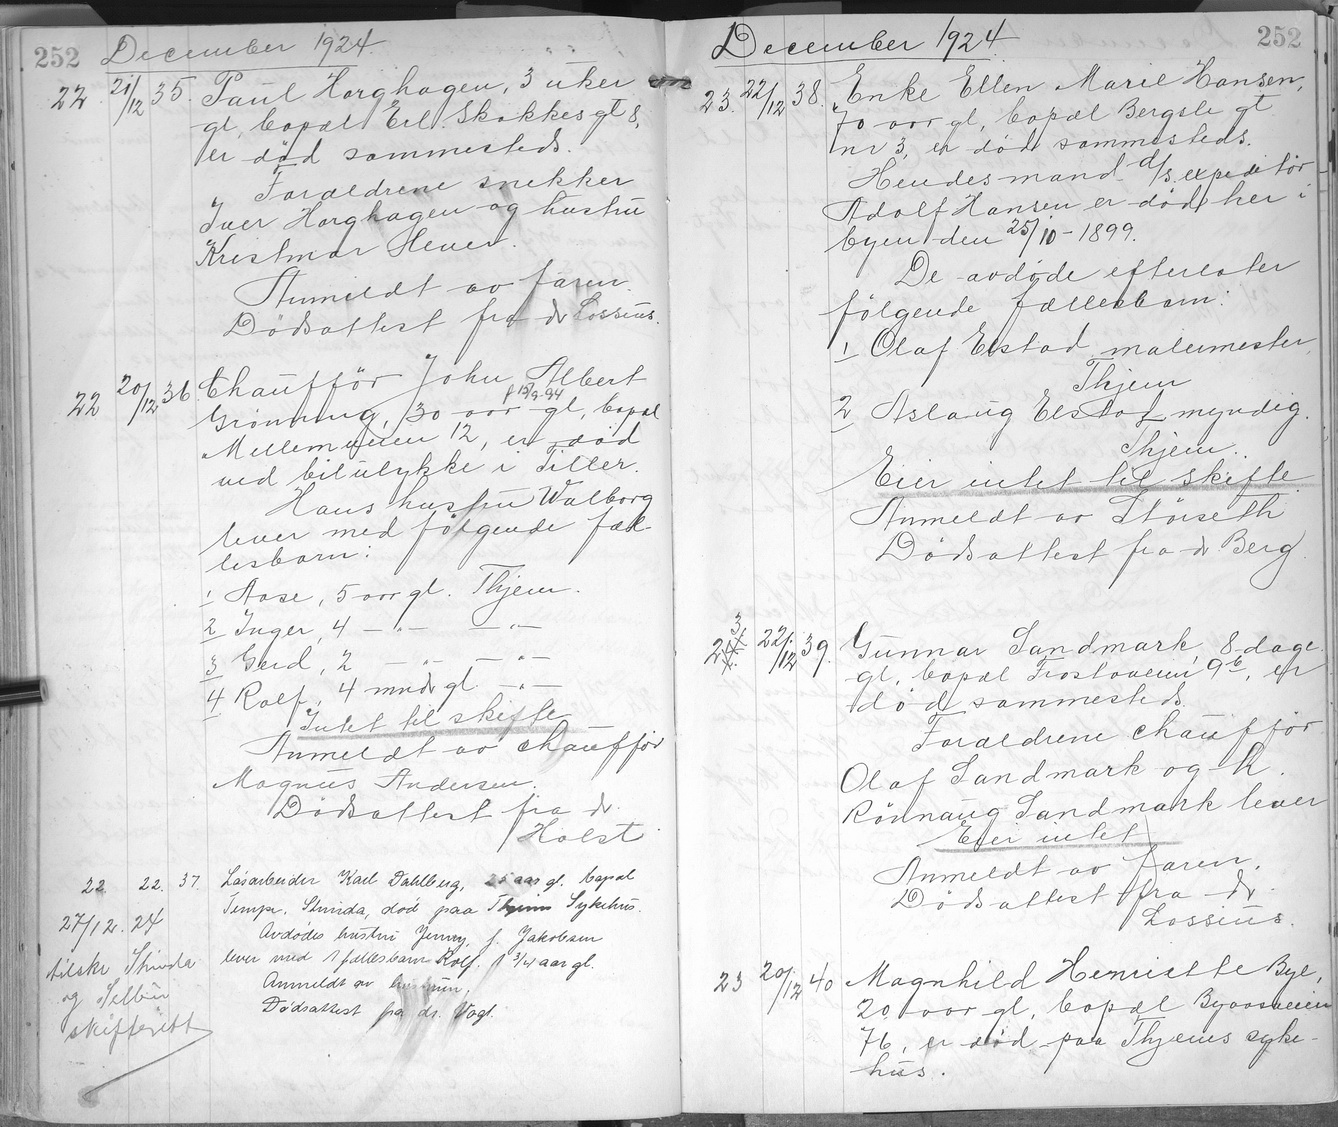 252 December 1924
22 21/12 35. Paul Horghagen, 3 uker
gl, bopæl Erl. Skakkesgt 8,
er død sammesteds.
Forældrene snekker
Iver Horghagen og hustru
Kristmar Hener.
Anmeldt av faren.
Dødsattest fra dr Lossius.
22 20/12 36 Chauffør John Albert
f 15/9-94
Grønning, 30 aar gl, bopæl
Mellemveien 12, er død
ved bilulykke i Tiller.
Hans hustru Walborg
lever med følgende fæl-
lesbarn:
1 Aase, 5 aar gl. Thjem.
2 Inger, 4 — „ — — „ —
3 Gerd, 2 — „ — — „ —
4 Rolf, 4 mndr gl. — „ —
Intet til skifte
Anmeldt av chauffør
Magnus Andersen.
Dødsattest fra dr.
Holst
22 22. 37. Løsarbeider Karl Dahlberg, 25 aar gl. bopæl
27/12. 24 Tempe, Strinda, død paa Thjems Sykehus.
Avdødes hustru Jenny, f. Jakobsen
tilskr Strinda lever med 1 fællesbarn Rolf, 1 3/4 aar gl.
og Selbu Anmeldt av
skifterett Dødsattest fra dr. Vogt.
December 1924 252
23. 22/12 38. Enke Ellen Marie Hansen,
70 aar gl, bopæl Bergsli gt
nr 3, er død sammesteds.
Hendes mand d/s. expeditør
Adolf Hansen er død her i
byen den 25/10 - 1899.
De avdøde efterlater
følgende fællesbarn:
1 Olaf Elstad malermester,
Thjem
2 Aslaug Elstad, myndig.
Thjem.
Eier intet til skifte
Anmeldt av Störseth
Dødsattest fra dr Berg.
23. 22/12 39. Gunnar Landmark, 8 dage
gl, bopæl Frostaveien 9b, er
død sammesteds.
Forældrene chauffør
Olaf Landmark og h.
Rønnaug Landmark lever
Eier intet
Anmeldt av faren.
Dødsattest fra dr.
Lossius.
23 20/12 40 Magnhild Henriette Bye,
20 aar gl, bopæl Byaasveien
76, er død paa Thjems syke-
hus.